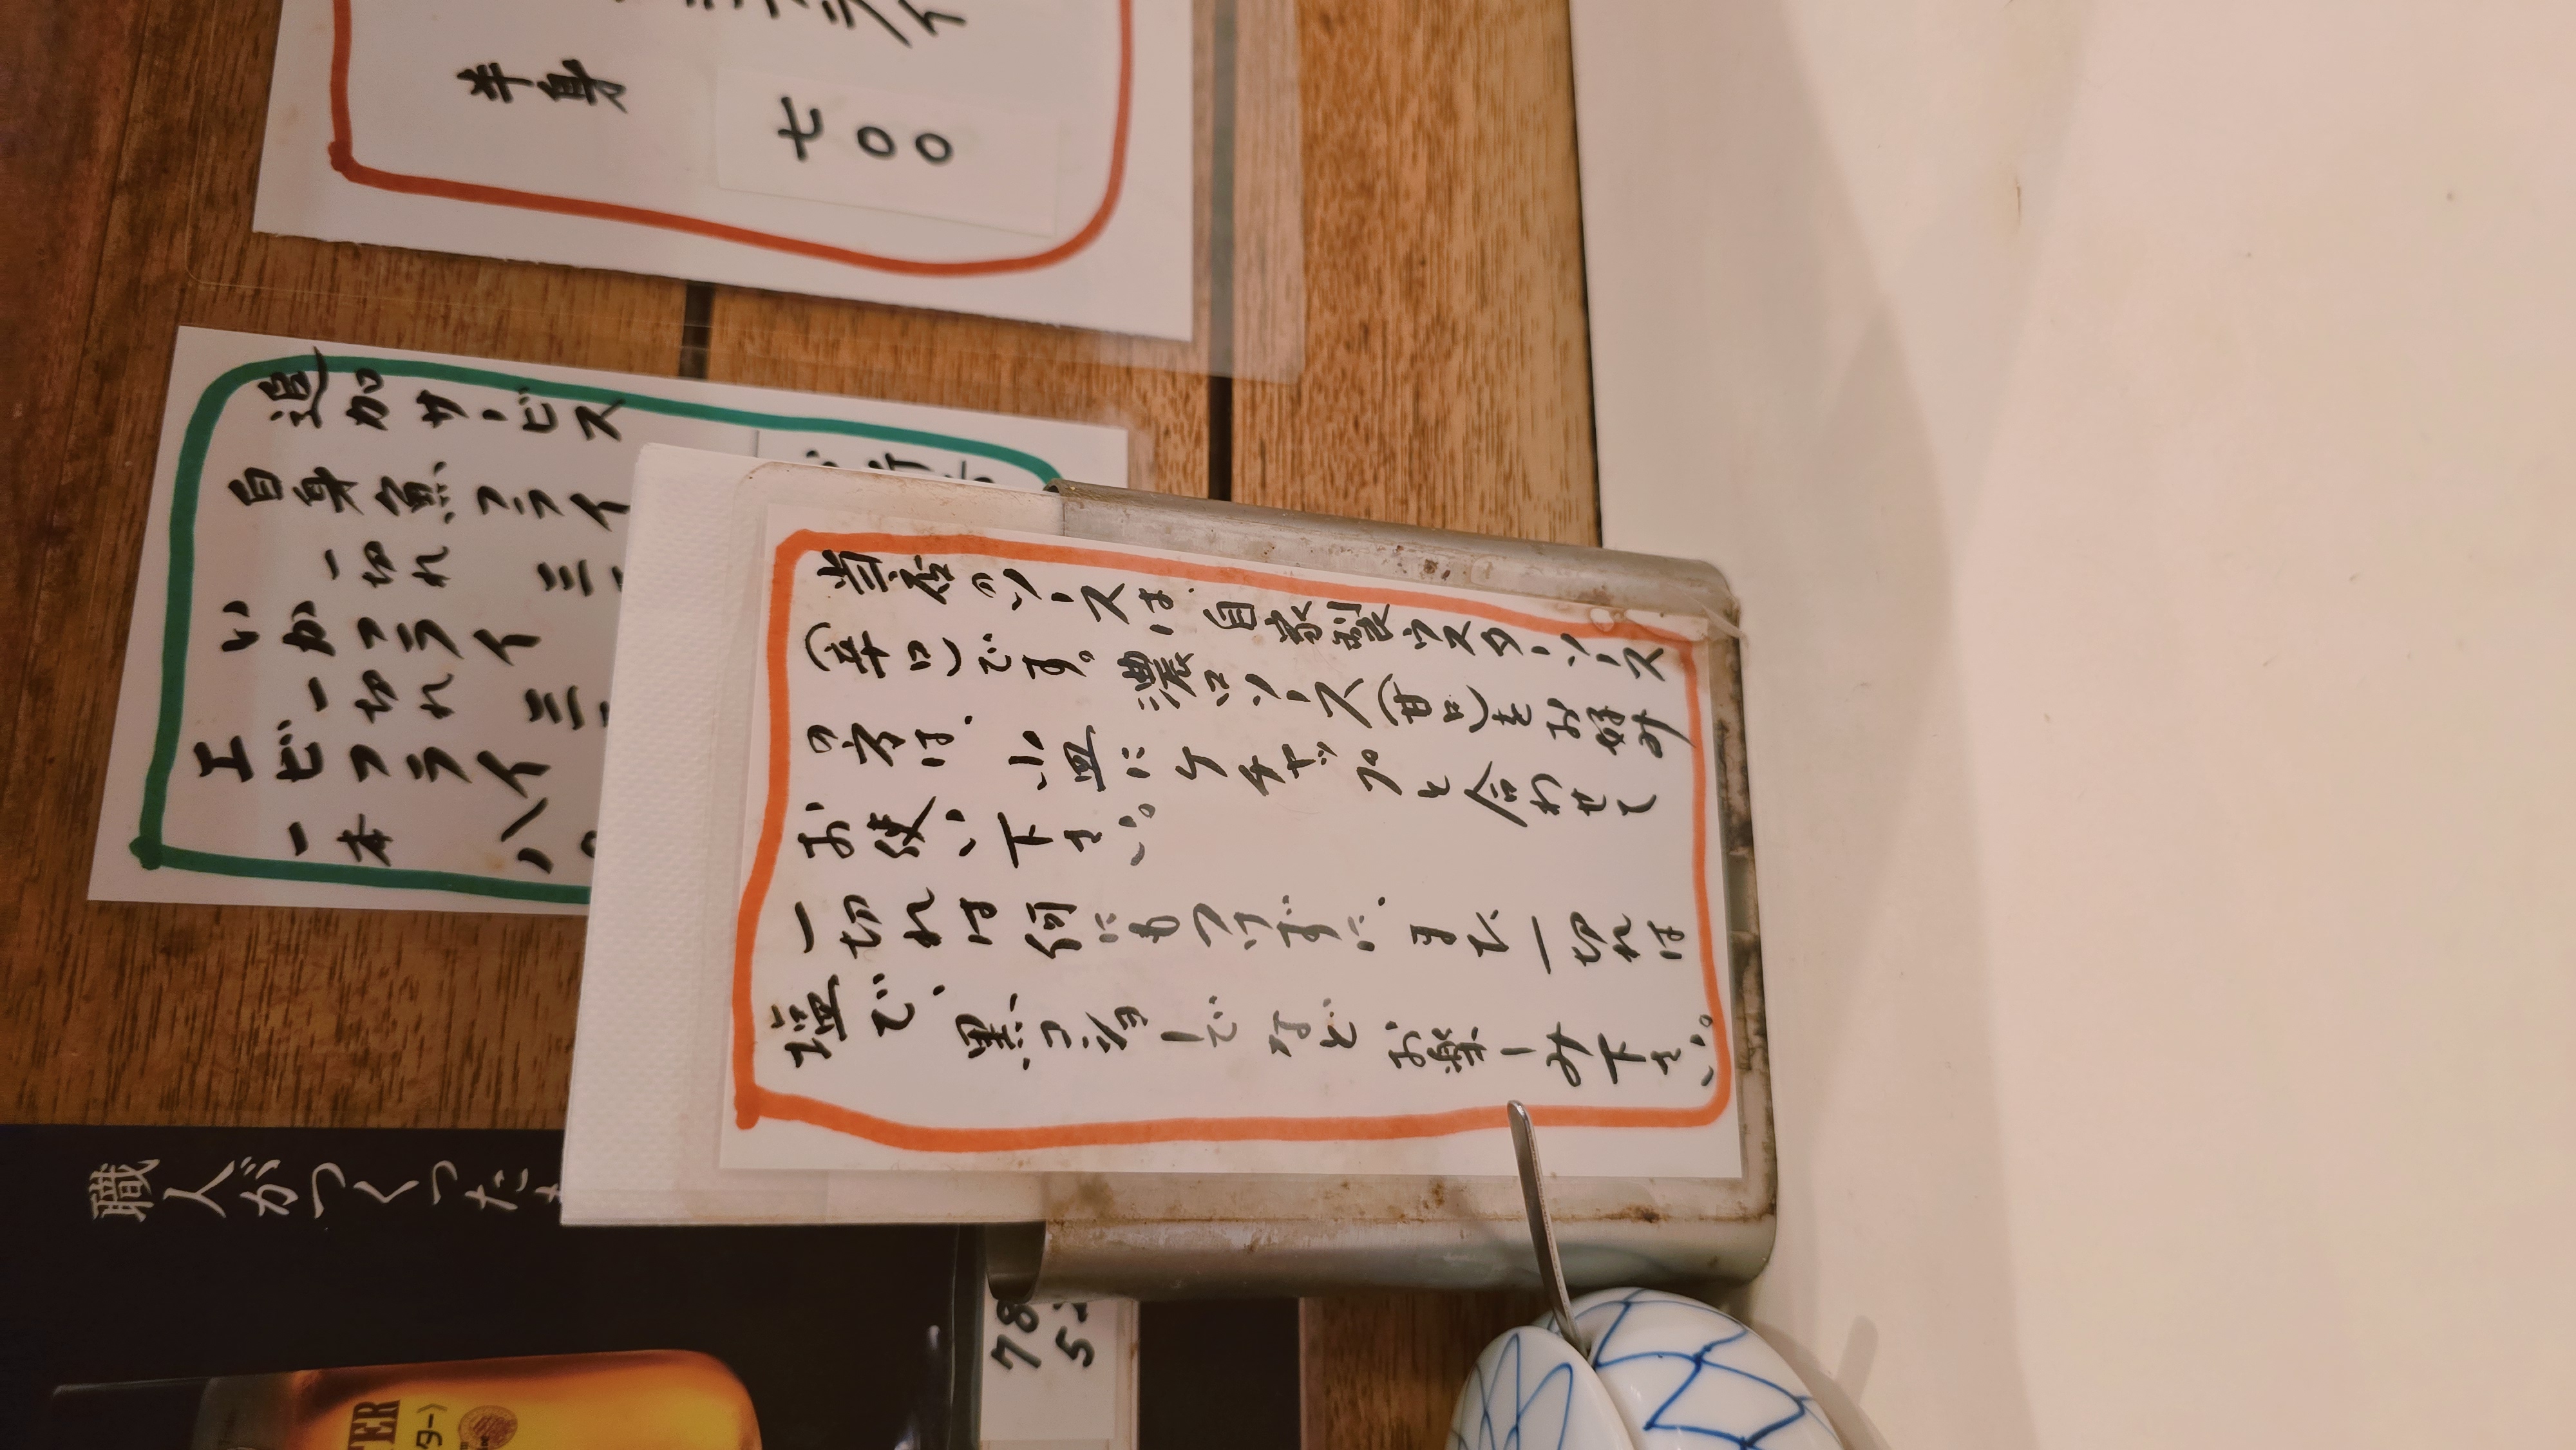 フライ
半身
七〇〇
追加サービス
白身魚フライ
一切れ 三
いかフライ
一切れ 三
エビフライ
一本 八
当店のソースは、自家製ウスターソース
(辛口)です。濃口ソース(甘口)をお好み
の方は、小皿にケチャップと合わせて
お使い下さい。
一切れは何にもつけずに、また一切れは
塩で、黒コショーでなどお楽しみ下さい。
職人がつくった
78
5
TER
ター〉